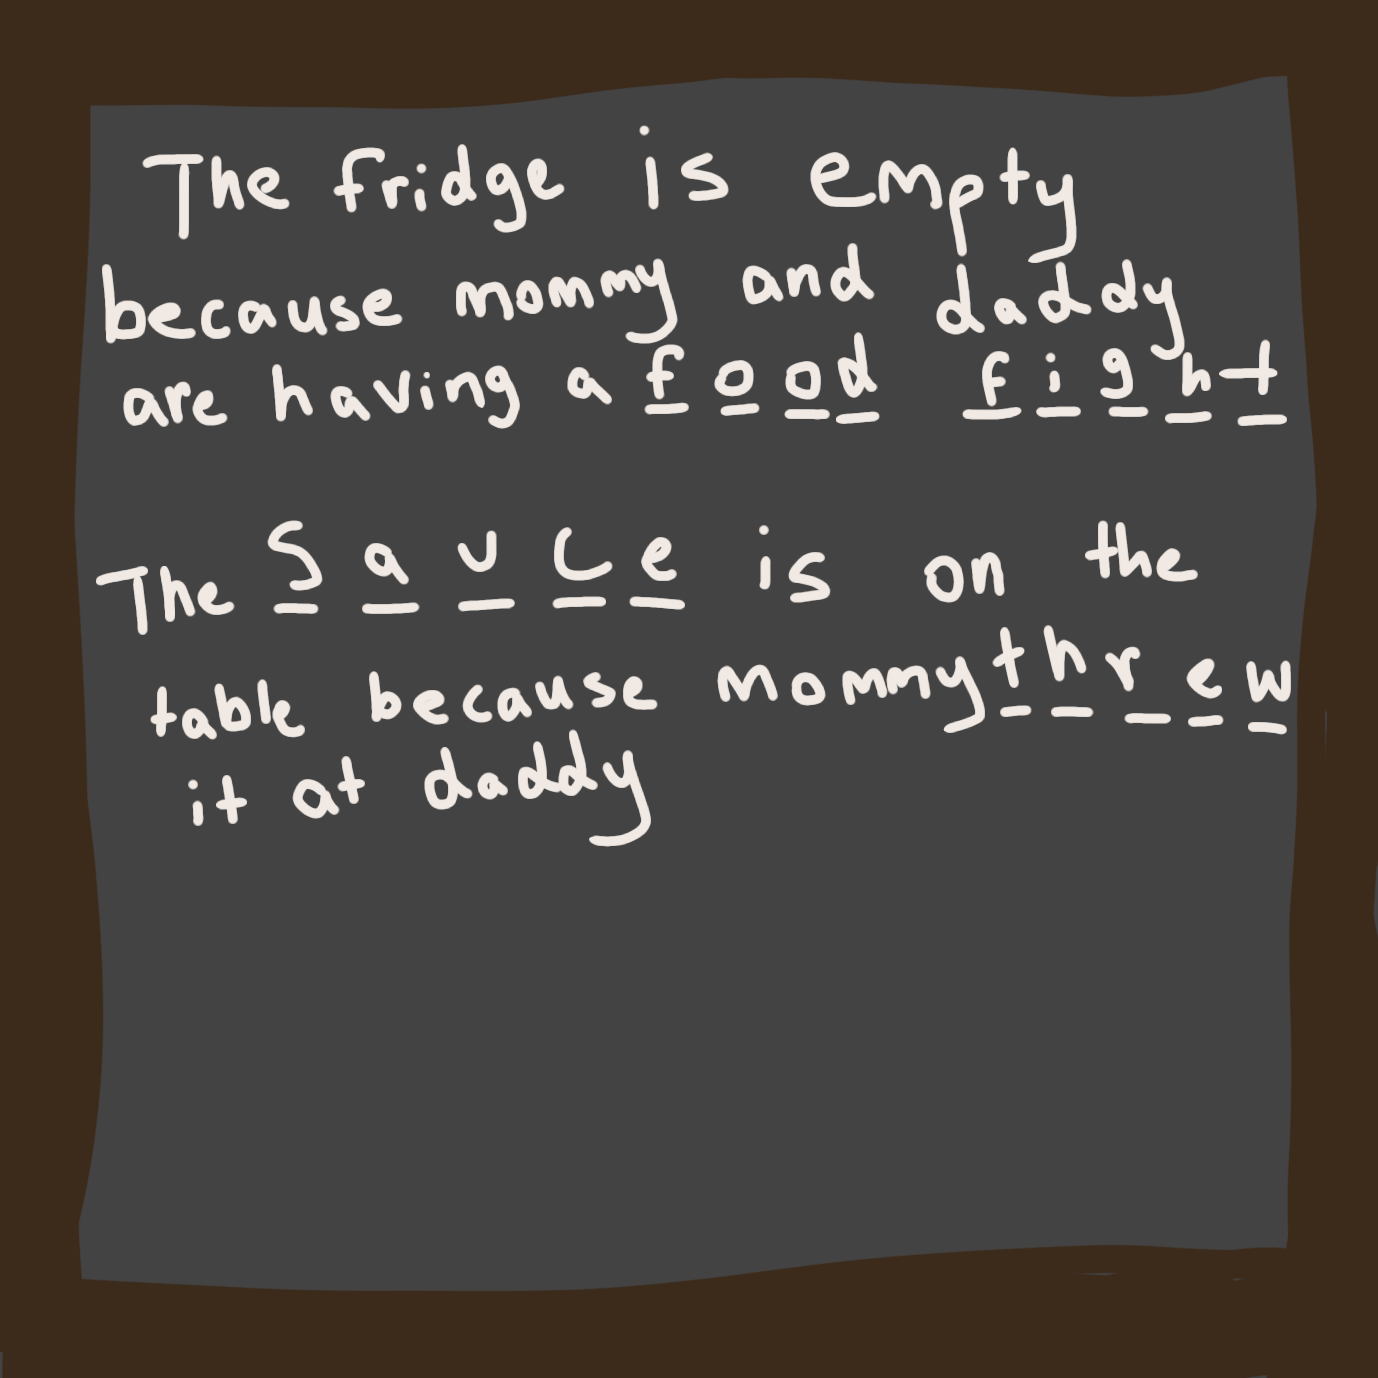 The fridge is empty
because mommy and daddy
are having a food fight
The Sauce is on the
table because mommy threw
it at daddy